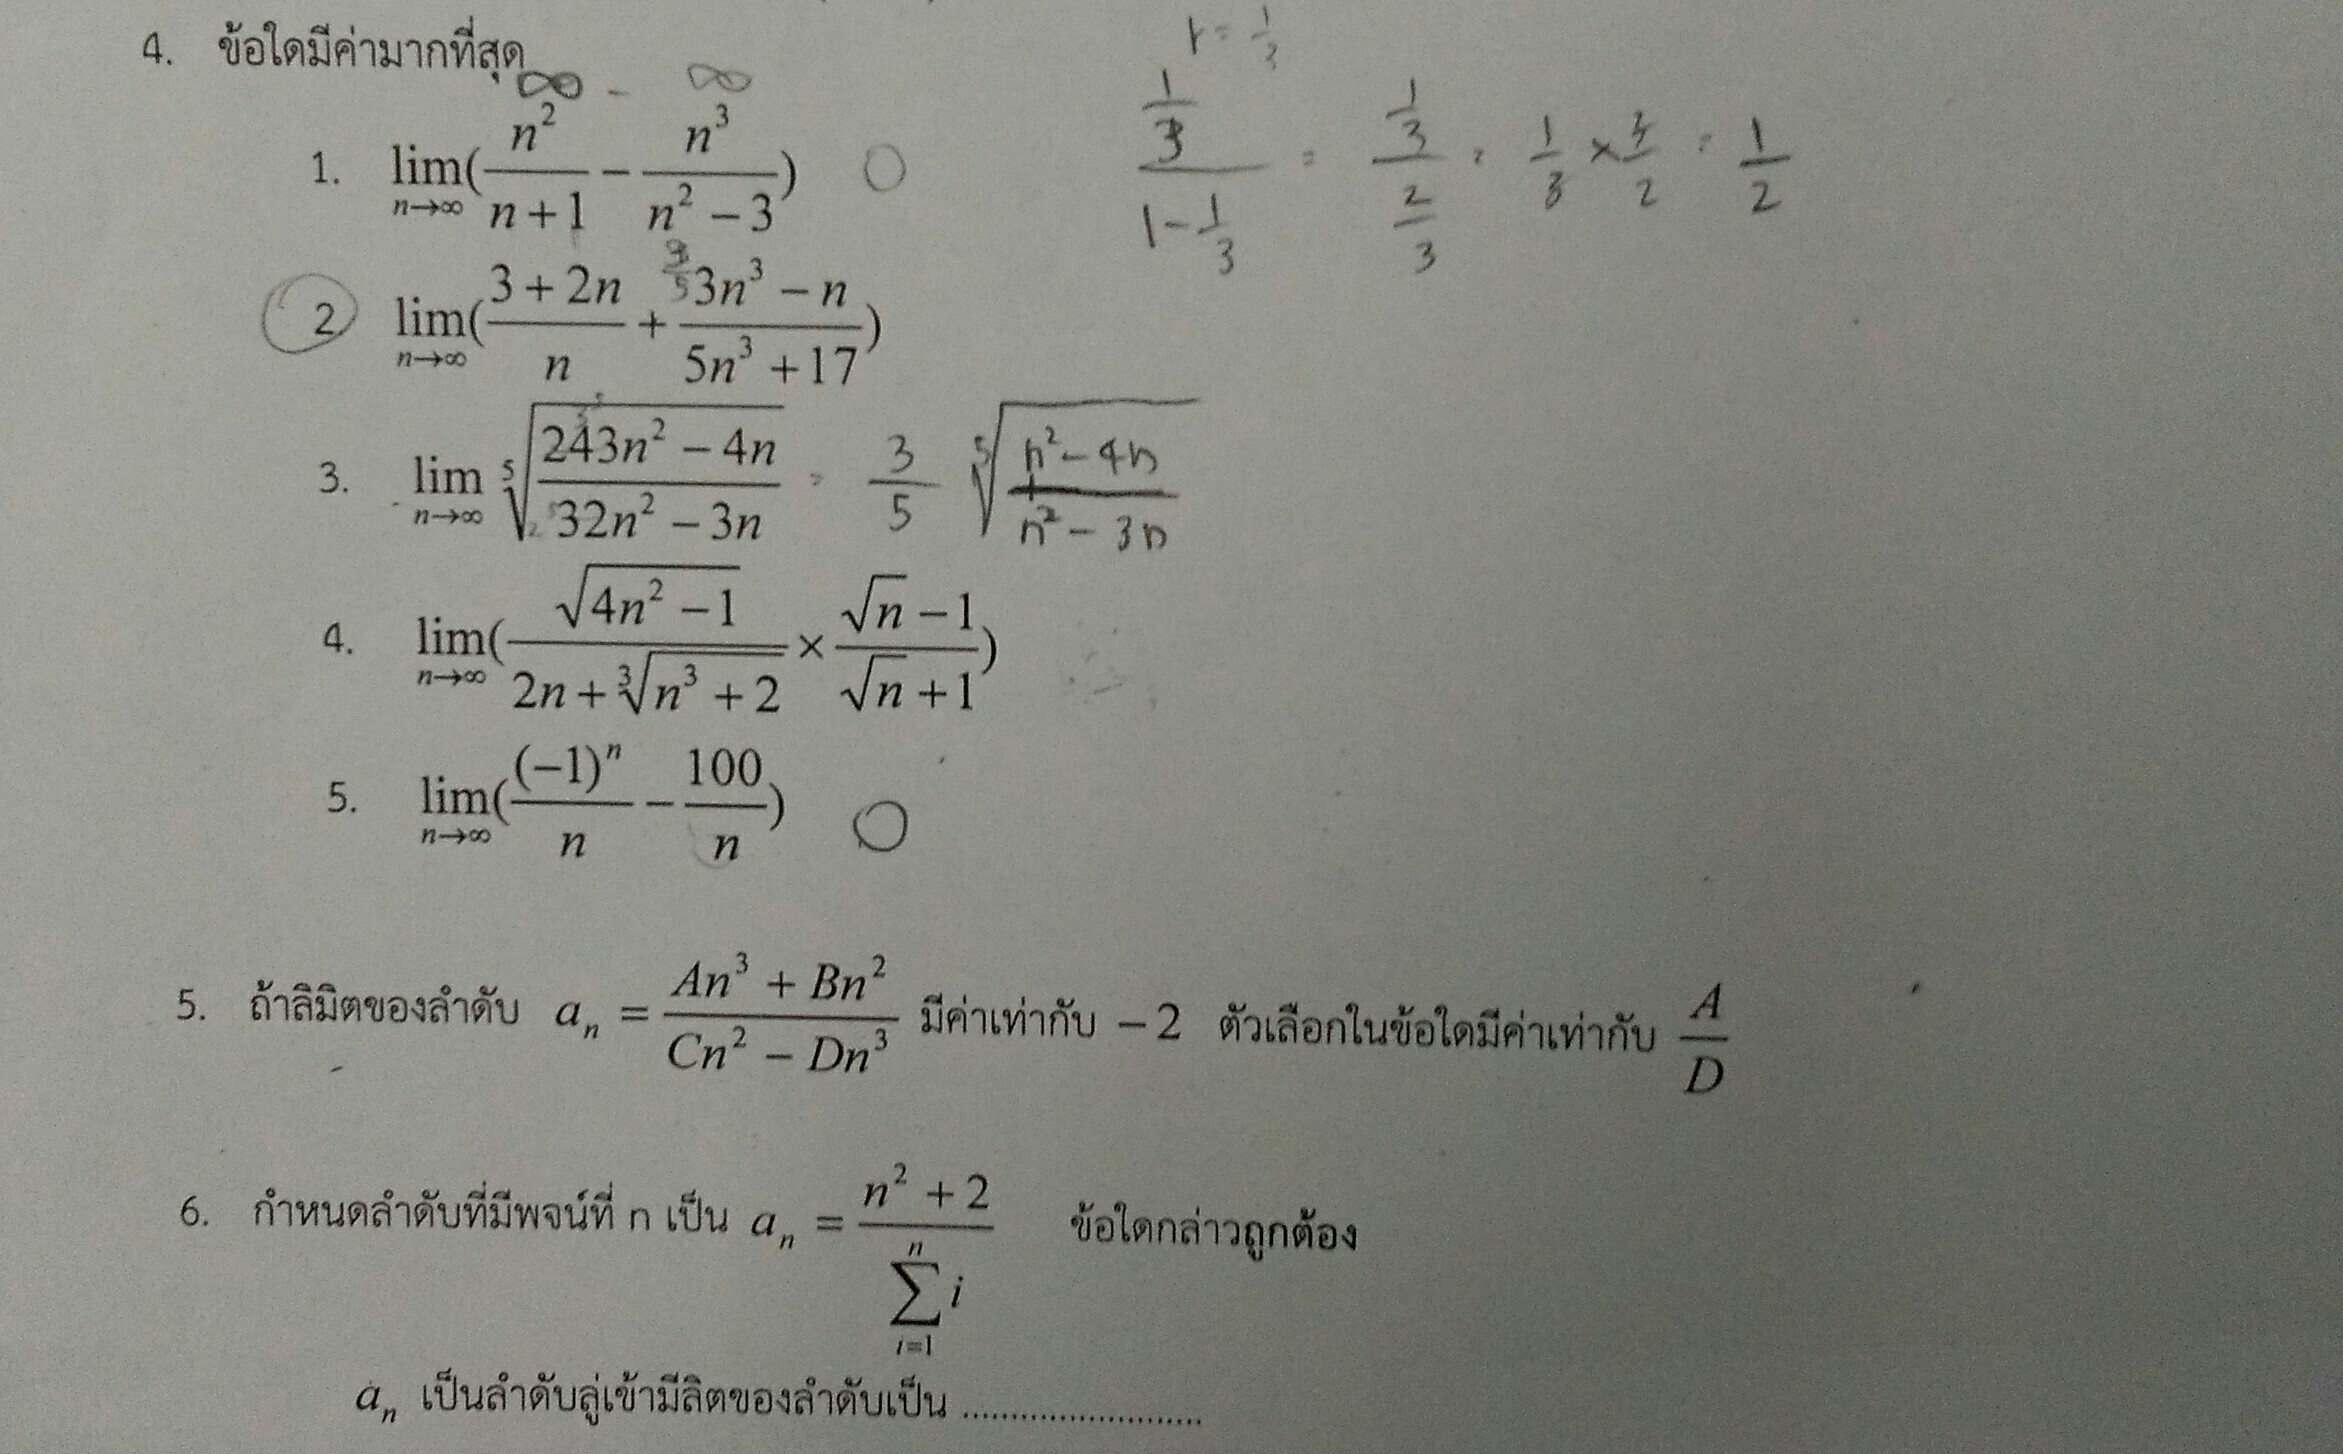 4. ข้อใดมีค่ามากที่สุด
∞ - ∞
1. lim n→∞ (n²/(n+1) − n³/(n²−3)) 0
r = 1/3
(1/3)/(1−1/3) = (1/3)/(2/3) = 1/3 × 3/2 = 1/2
2 lim n→∞ ((3+2n)/n + (3n³−n)/(5n³+17))
3. lim n→∞ ⁵√((243n²−4n)/(32n²−3n)) = 3/5 ⁵√((n²−4n)/(n²−3n))
4. lim n→∞ (√(4n²−1)/(2n+³√(n³+2)) × (√n−1)/(√n+1))
5. lim n→∞ ((−1)ⁿ/n − 100/n) 0
5. ถ้าลิมิตของลำดับ aₙ = (An³+Bn²)/(Cn²−Dn³) มีค่าเท่ากับ −2 ตัวเลือกในข้อใดมีค่าเท่ากับ A/D
6. กำหนดลำดับที่มีพจน์ที่ n เป็น aₙ = (n²+2)/(∑ i=1 n i) ข้อใดกล่าวถูกต้อง
aₙ เป็นลำดับลู่เข้ามีลิตของลำดับเป็น ........................